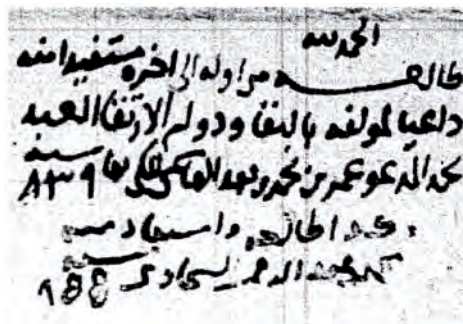 الحمد لله
طالعه من اوله الى اخره مستفيدا منه
داعيا لمولفه بالبقا ودوام الارتقا العبد
محمد المدعو عمر بن محمد بن فهد الهاشمي المكي سنة ٨٣٩
وكذا طالعه واستفاد منه
محمد بن عبد الرحمن السخاوي سنة